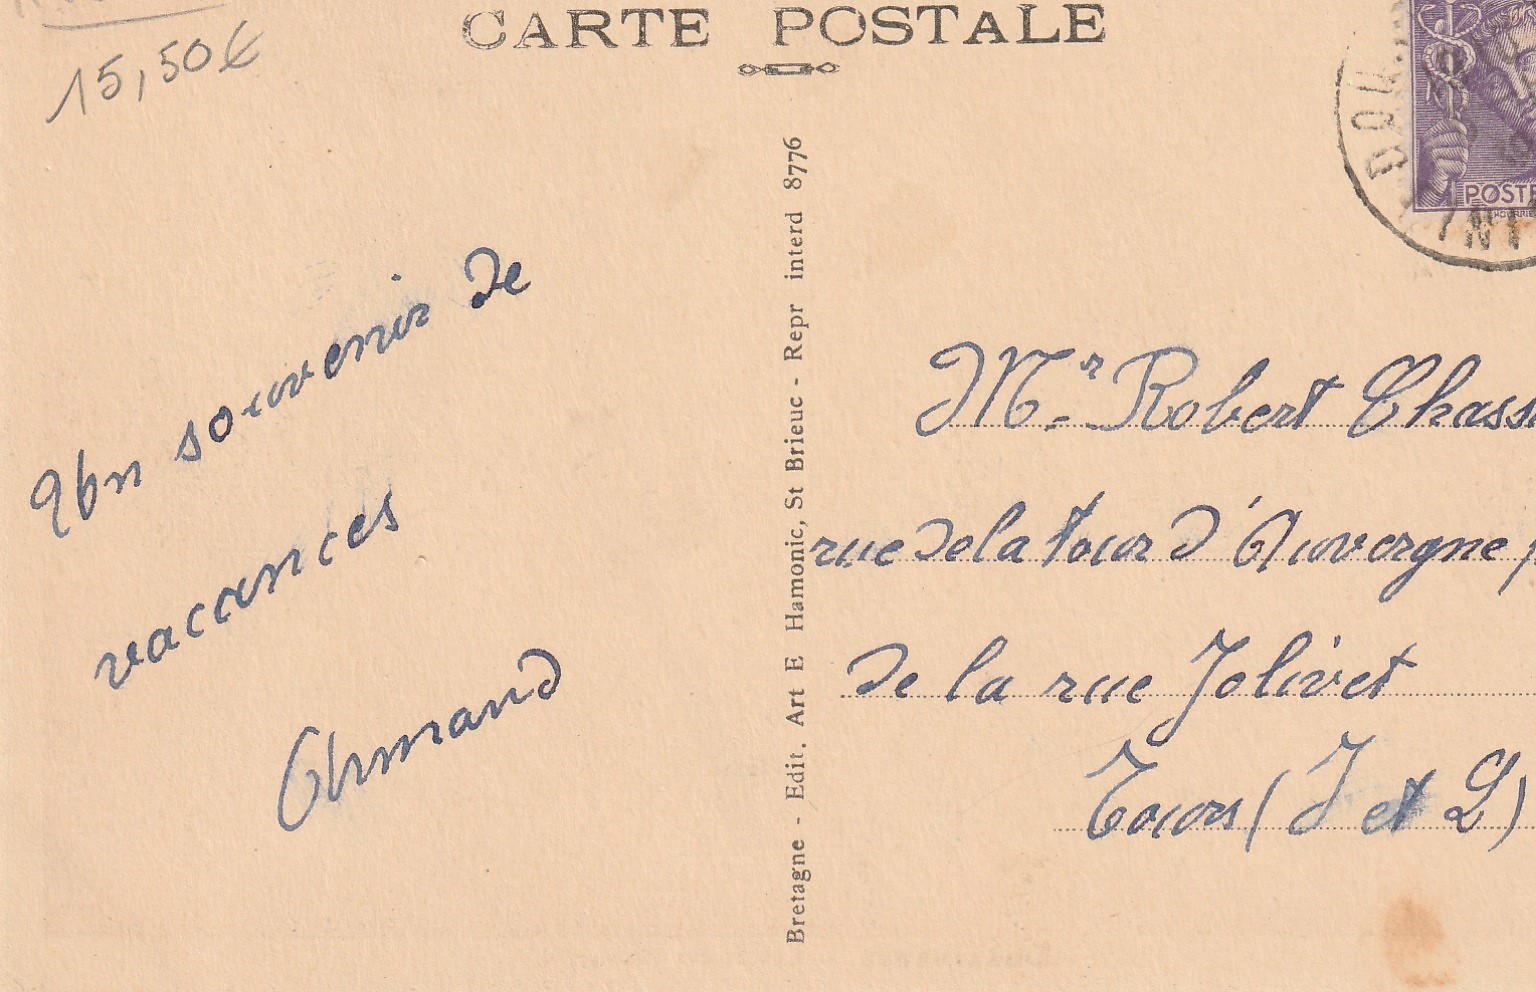 CARTE POSTALE
15,50€
Un souvenir de
vacances
Armand
Bretagne - Edit. Art E Hamonic, St Brieuc - Repr interd 8776
DOU
POSTE
Mr Robert Chass
rue de la Tour d'Auvergne
de la rue Jolivet
Tours (I et L)